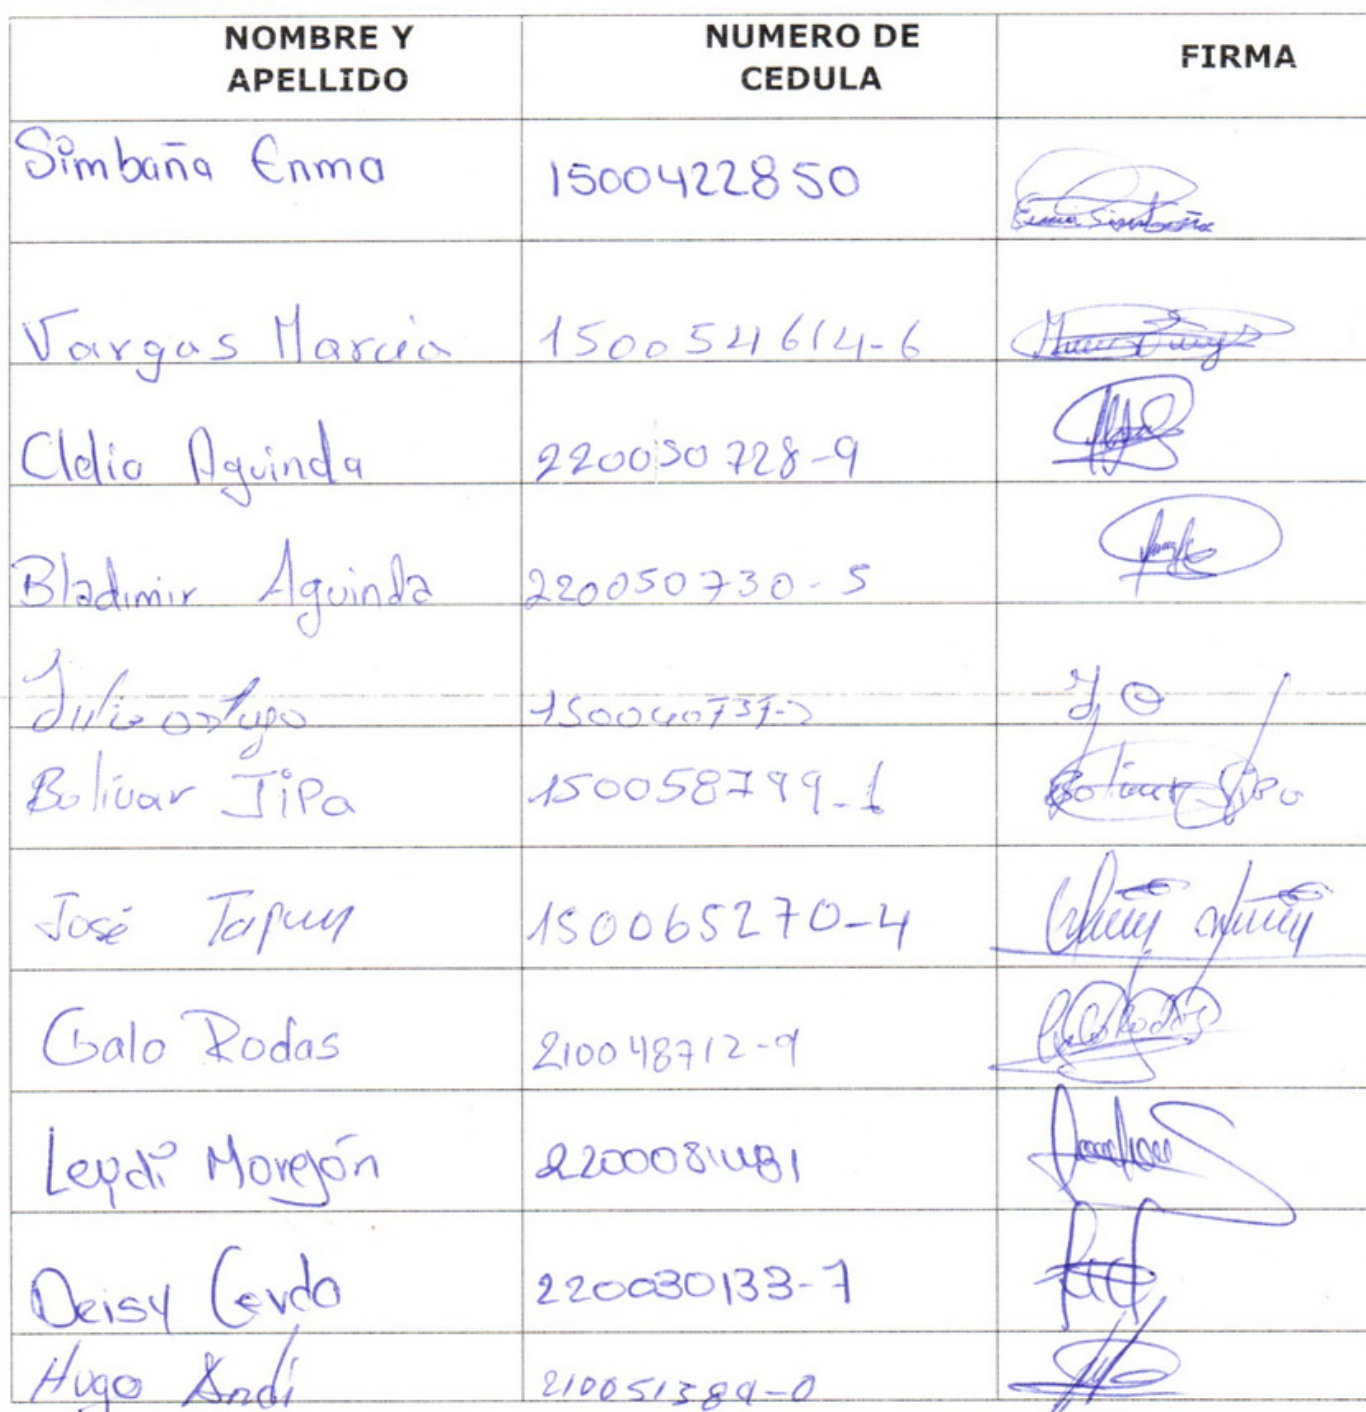 NOMBRE Y APELLIDO NUMERO DE CEDULA FIRMA
Simbaña Enma 1500422850 Enma Simbaña
Vargas Marcia 150054614-6
Clelia Aguinda 220050728-9
Bladimir Aguinda 220050730-5
Julio J O
Bolivar Tipa 150058799-1 Bolivar Tipa
José Tapuy 150065270-4
Galo Rodas 210048712-9 Galo Rodas
Leydi Morejón
Deisy Cerda 220030133-7
Hugo Andi 210051389-0